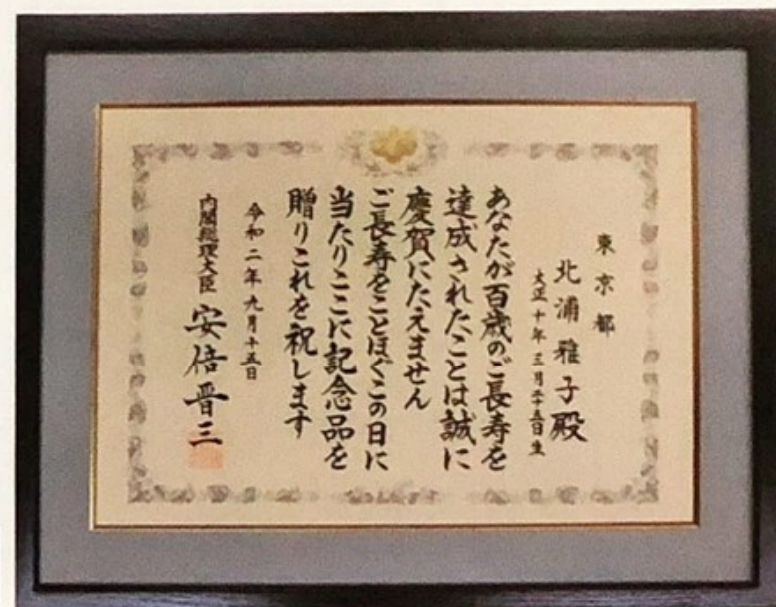 東京都
北浦雅子殿
大正十年三月二十五日生
あなたが百歳のご長寿を
達成されたことは誠に
慶賀にたえません
ご長寿をことほぐこの日に
当たりここに記念品を
贈りこれを祝します
令和二年九月十五日
内閣総理大臣 安倍晋三